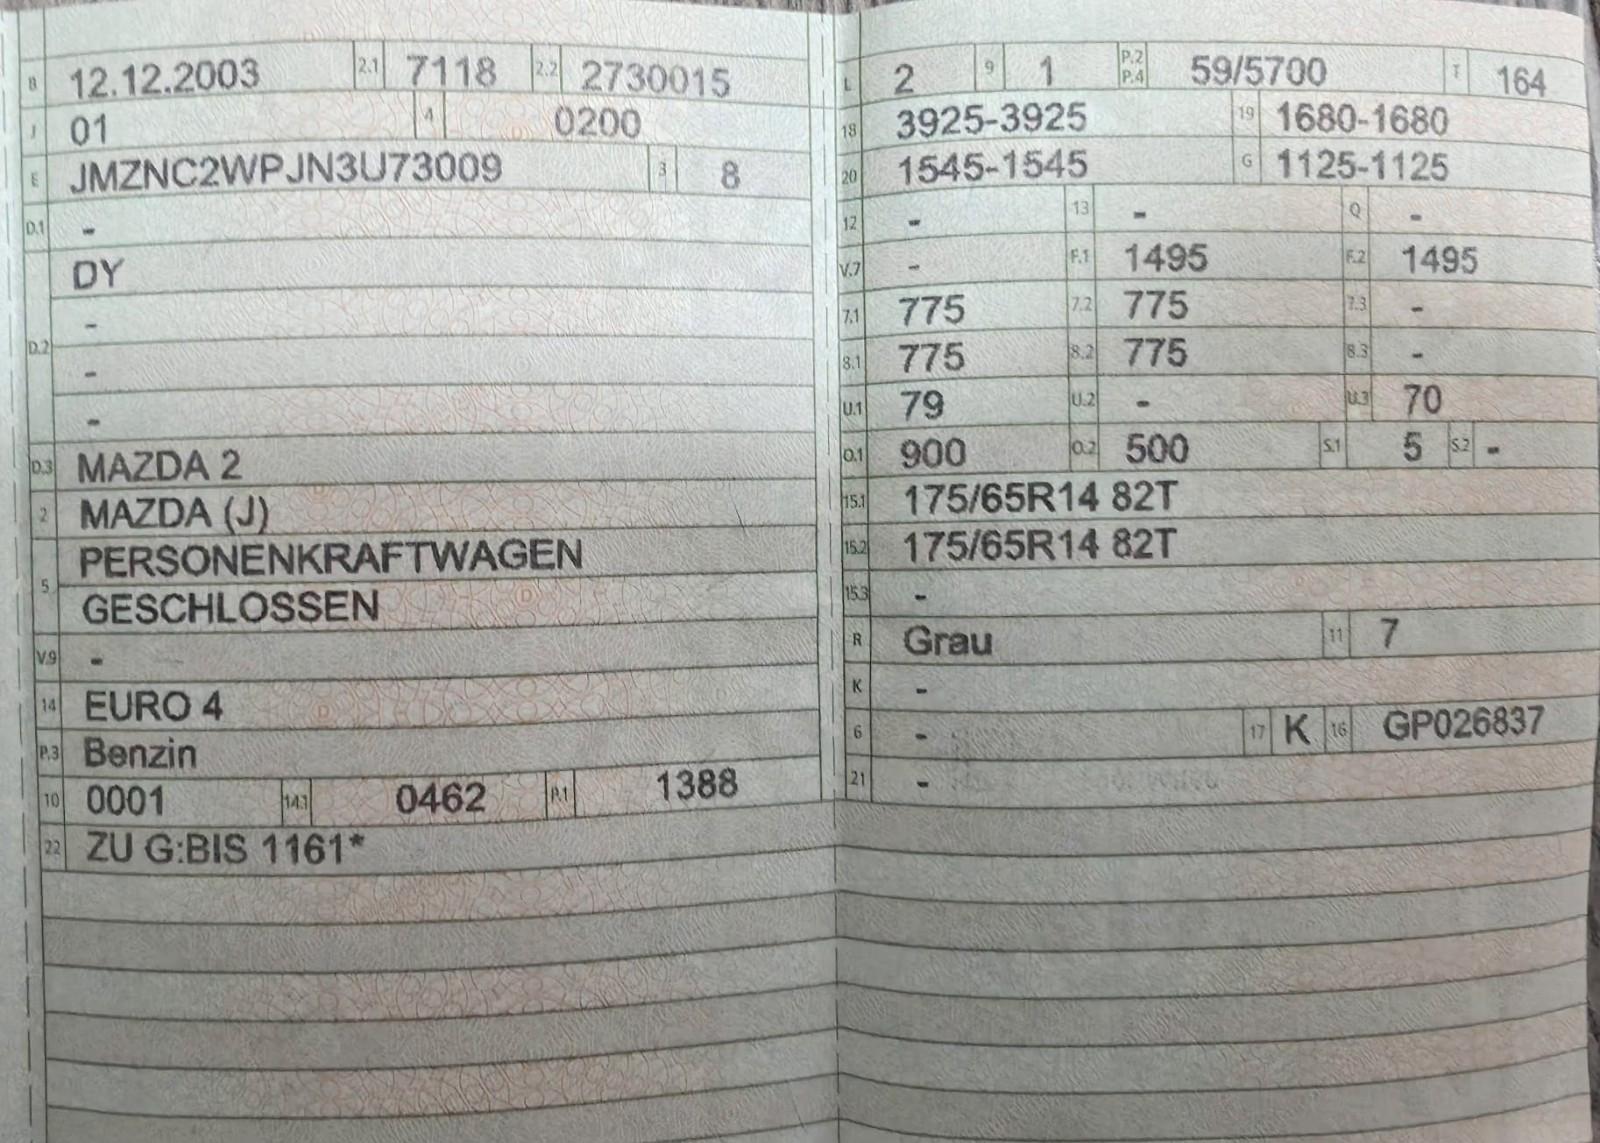 B 12.12.2003 2.1 7118 2.2 2730015
J 01 4 0200
E JMZNC2WPJN3U73009 3 8
D.1 -
DY
-
D.2 -
-
D.3 MAZDA 2
2 MAZDA (J)
5 PERSONENKRAFTWAGEN
GESCHLOSSEN
V.9 -
14 EURO 4
P.3 Benzin
10 0001 14.1 0462 P.1 1388
22 ZU G:BIS 1161*
L 2 9 1 P.2 P.4 59/5700 T 164
18 3925-3925 19 1680-1680
20 1545-1545 G 1125-1125
12 - 13 - Q -
V.7 - F.1 1495 F.2 1495
7.1 775 7.2 775 7.3 -
8.1 775 8.2 775 8.3 -
U.1 79 U.2 - U.3 70
O.1 900 O.2 500 S.1 5 S.2 -
15.1 175/65R14 82T
15.2 175/65R14 82T
15.3 -
R Grau 11 7
K -
6 - 17 K 16 GP026837
21 -